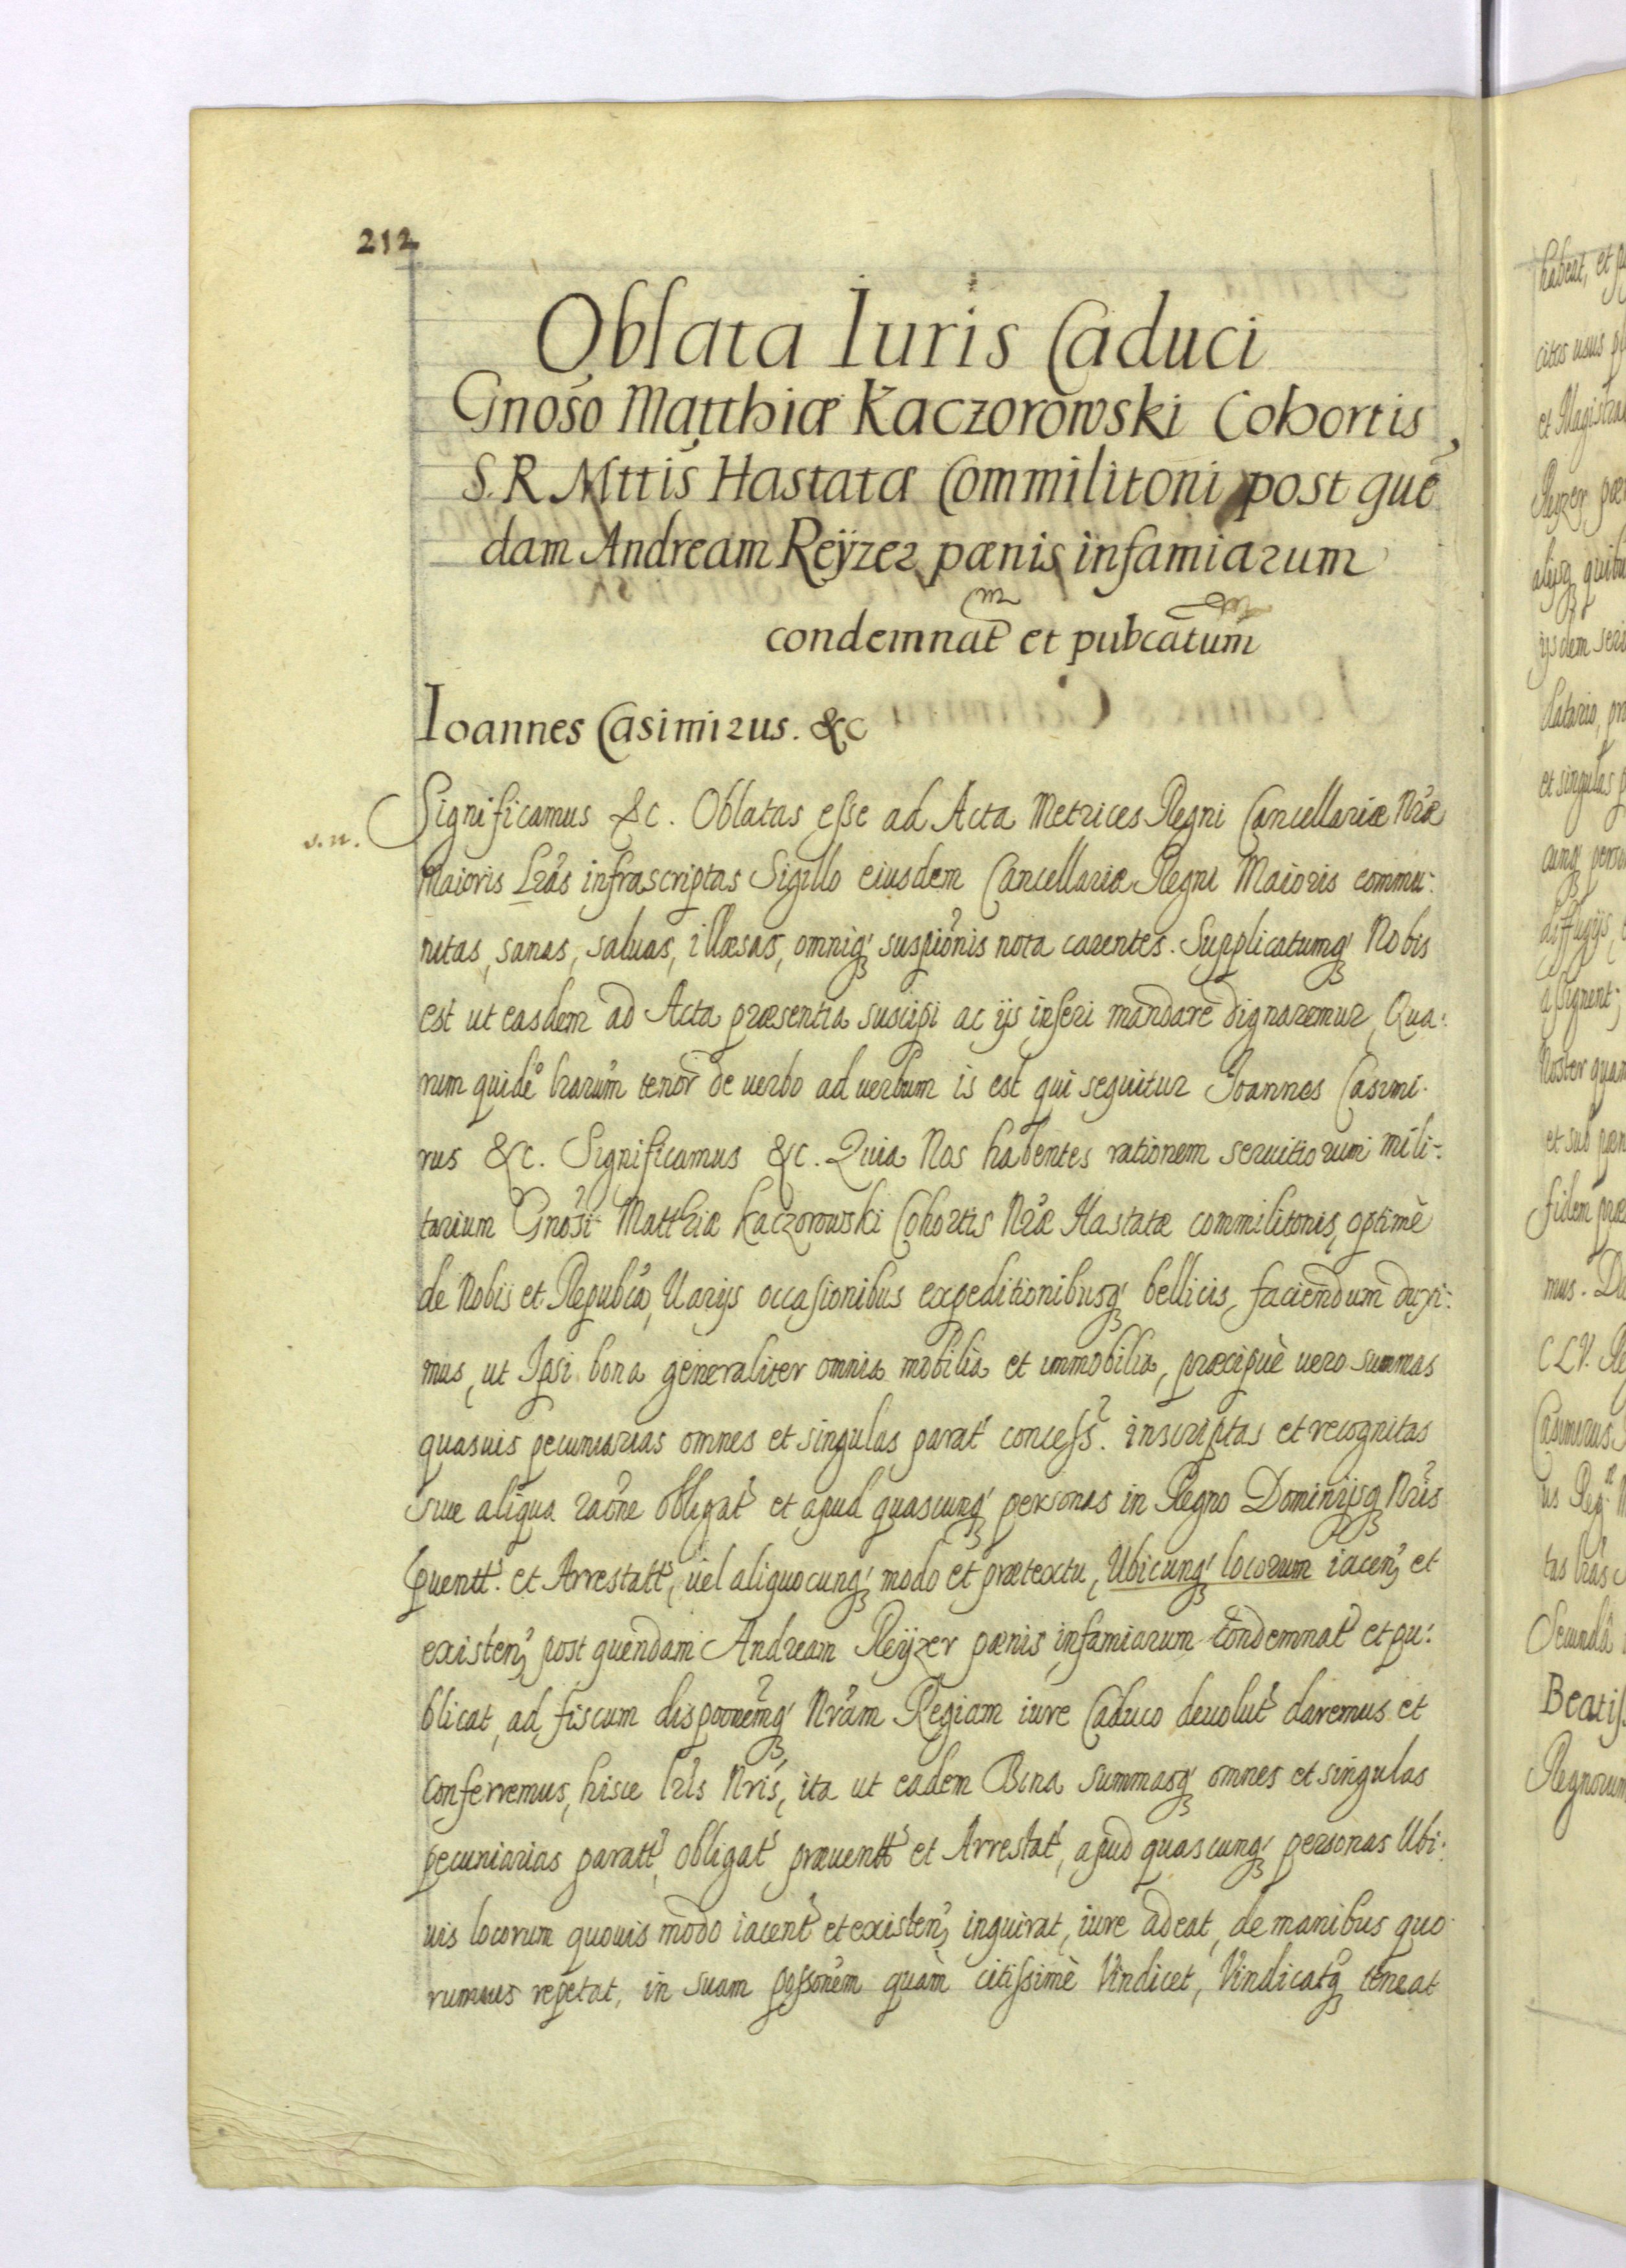 212
Oblata Iuris Caduci
Gnoso Matthiæ Kaczorowski Cohortis,
S. R. Mttis Hastatæ Commilitoni post quē
dam Andream Reÿzer pœnis infamiarum
condemnat et pubcatum
Ioannes Casimirus. &c
s. n.
Significamus &c. Oblatas esse ad Acta Metrices Regni Cancellariæ Nræ
Maioris Lras infrascriptas Sigillo eiusdem Cancellariæ Regni Maioris commu-
nitas, sanas, saluas, illæsas, omniq suspionis nota carentes. Supplicatumq Nobis
est ut easdem ad Acta præsentia suscipi ac ijs inseri mandare dignaremur, Qua-
rum quide lrarum tenor de uerbo ad uerbum is est qui sequitur Ioannes Casimi-
rus &c. Significamus &c. Quia Nos habentes rationem seruitiorum mili-
tarium Gnosi Matthiæ Kaczorowski Cohortis Nræ Hastatæ commilitonis, optimè
de Nobis et Republca, Uarijs occasionibus expeditionibusq bellicis, faciendum duxi-
mus, ut Ipsi bona generaliter omnia mobilia et immobilia, præcipuè uero summas
quasuis pecuniarias omnes et singulas parat concess. inscriptas et recognitas
siue aliqua raone obligat et apud quascunq personas in Regno Dominijsq Nris
puentt. et Arrestatt, uel aliquocunq modo et prætextu, Ubicunq locorum iacen, et
existen, post quendam Andream Reÿzer pœnis infamiarum condemnat et pu-
blicat, ad fiscum disponemq Nram Regiam iure Caduco deuolut daremus et
conferremus, hisce lris Nris, ita ut eadem Bona summasq omnes et singulas
pecuniarias paratt, obligat præuentt et Arrestat, apud quascunq personas Ubi-
uis locorum quouis modo iacent et existen, inquirat, iure adeat, de manibus quo
rumuis repetat, in suam possonem quàm citissimè Vindicet, Vindicatq teneat